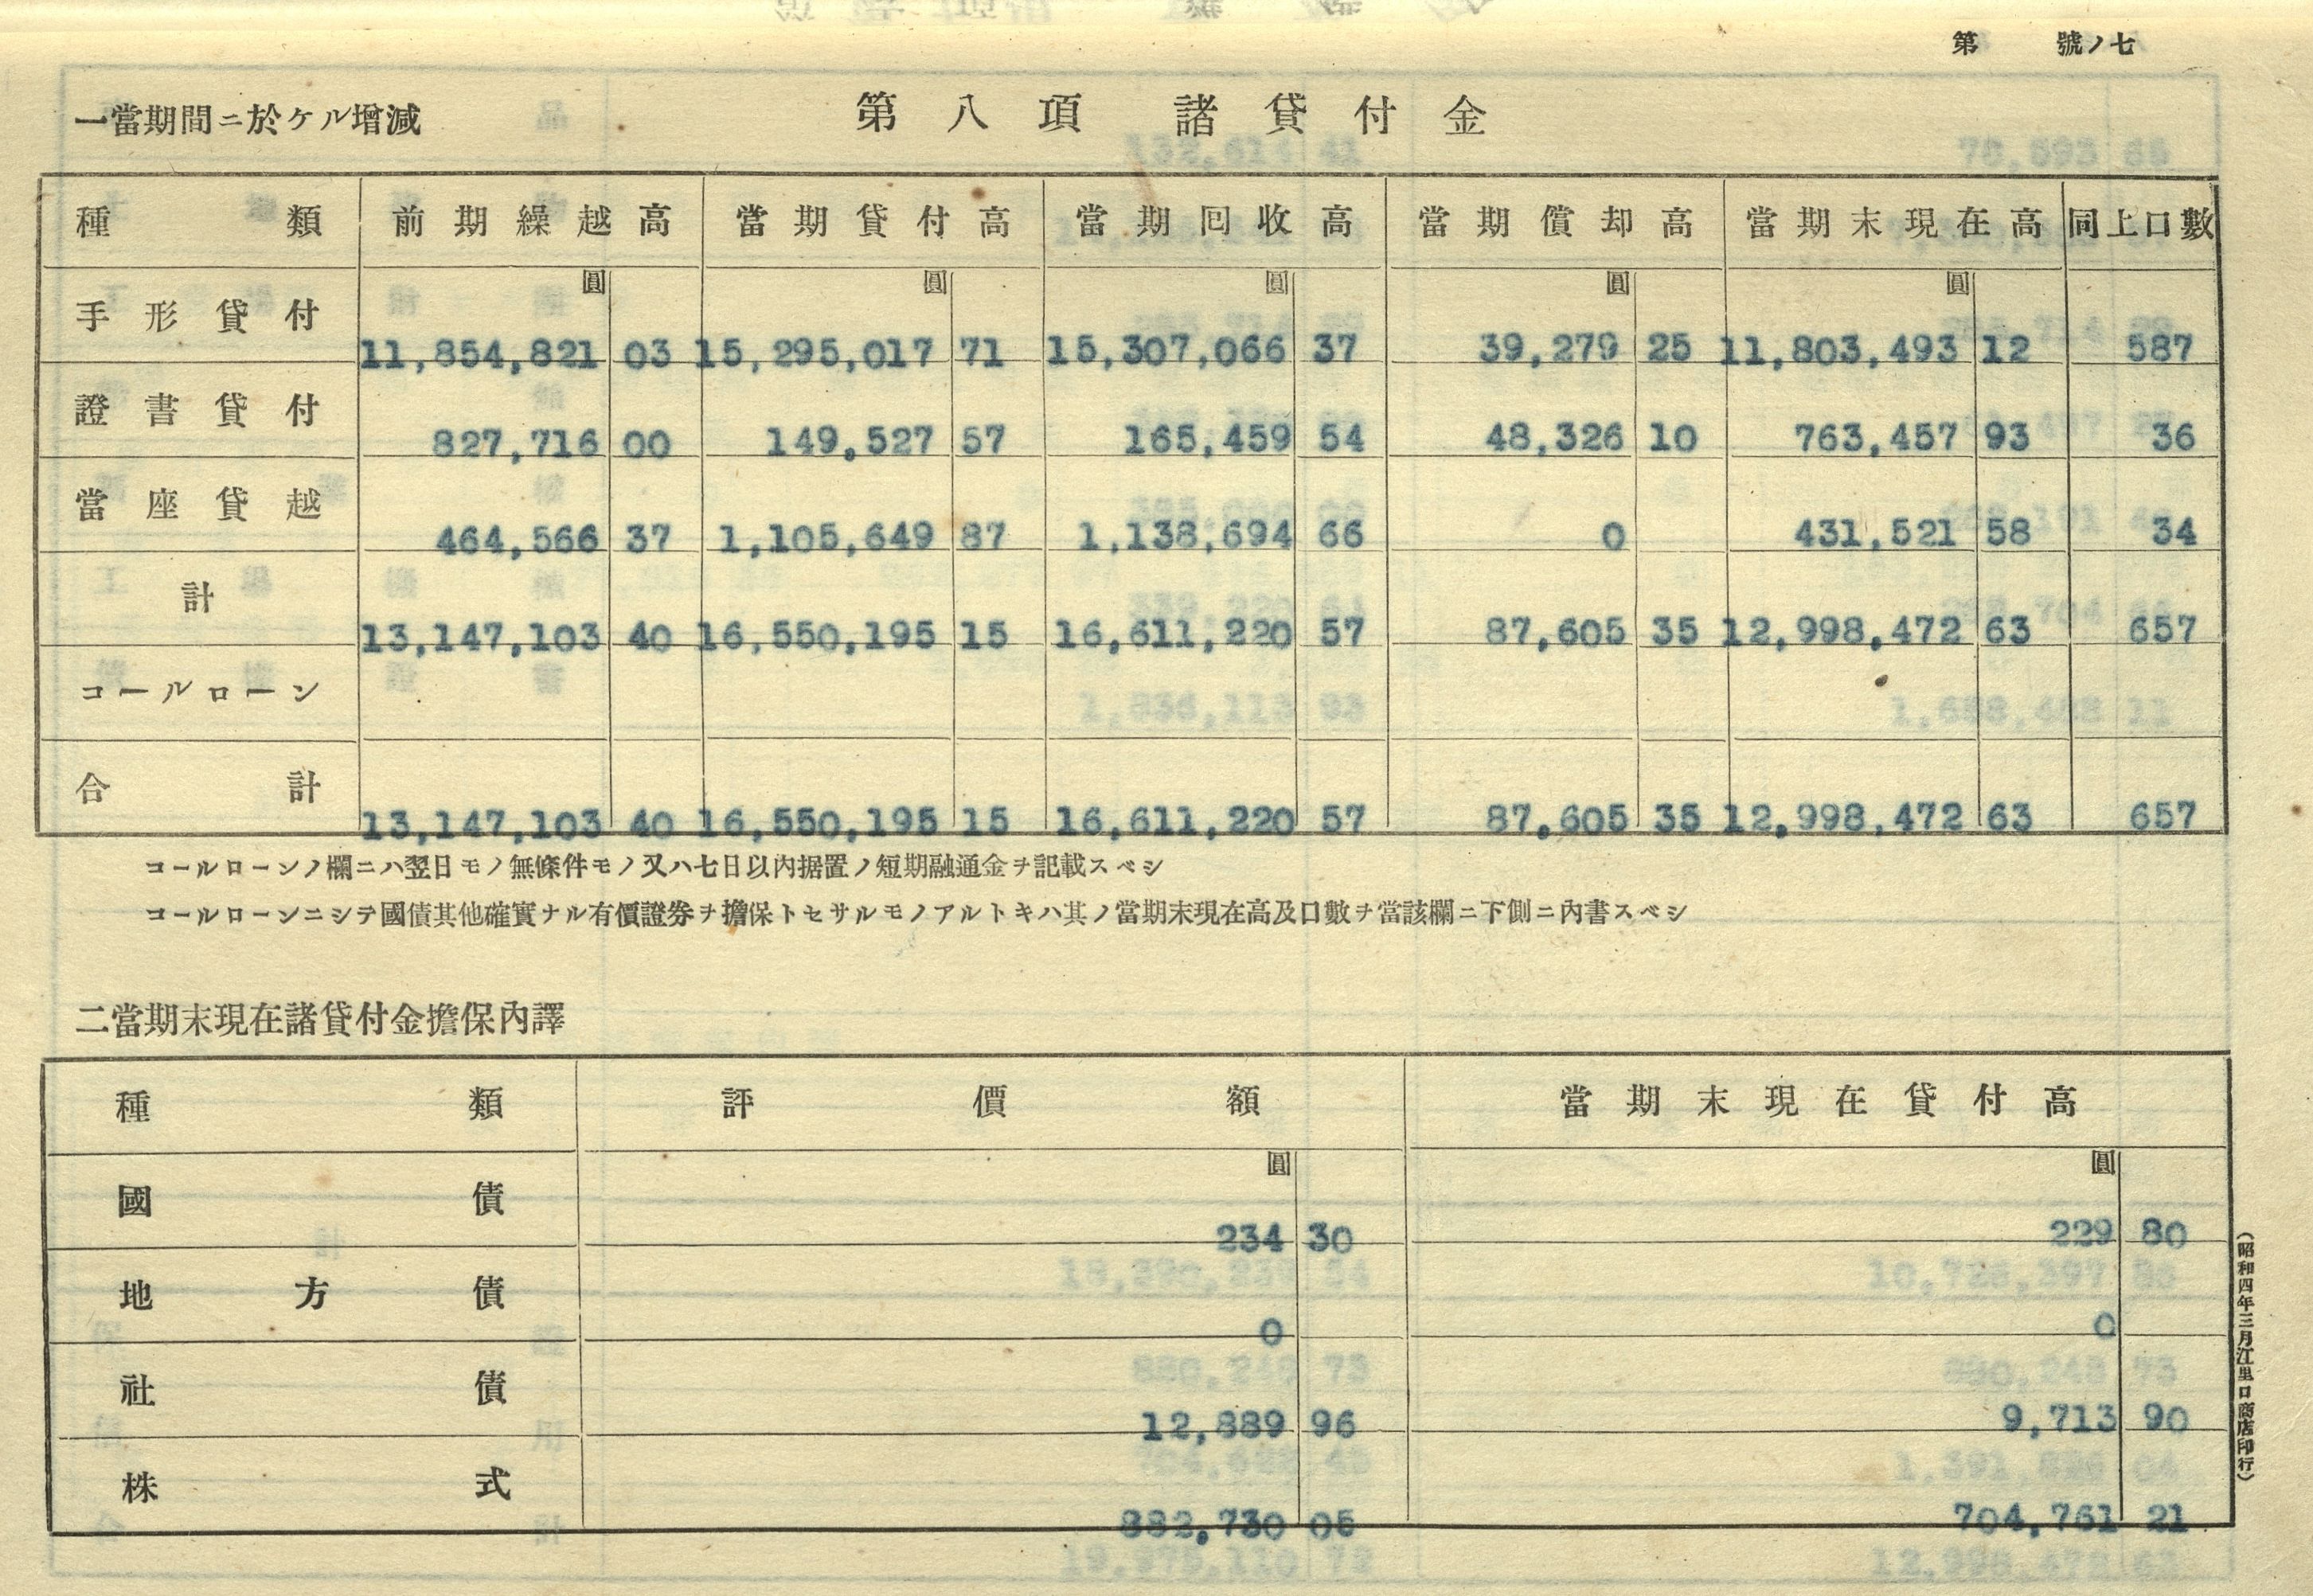 第 號ノ七
一當期間ニ於ケル增減 第八項 諸貸付金
種類 前期繰越高 當期貸付高 當期回收高 當期償却高 當期末現在高 同上口數
圓 圓 圓 圓 圓
手形貸付 11,854,821 03 15,295,017 71 15,307,066 37 39,279 25 11,803,493 12 587
證書貸付 827,716 00 149,527 57 165,459 54 48,326 10 763,457 93 36
當座貸越 464,566 37 1,105,649 87 1,138,694 66 0 431,521 58 34
計 13,147,103 40 16,550,195 15 16,611,220 57 87,605 35 12,998,472 63 657
コールローン
合計 13,147,103 40 16,550,195 15 16,611,220 57 87,605 35 12,998,472 63 657
コールローンノ欄ニハ翌日モノ無條件モノ又ハ七日以內据置ノ短期融通金ヲ記載スベシ
コールローンニシテ國債其他確實ナル有價證券ヲ擔保トセサルモノアルトキハ其ノ當期末現在高及口數ヲ當該欄ニ下側ニ內書スベシ
二當期末現在諸貸付金擔保內譯
種類 評價額 當期末現在貸付高
圓 圓
國債 234 30 229 80
地方債 0 0
社債 12,889 96 9,713 90
株式 882,730 05 704,761 21
(昭和四年三月江里口商店印行)